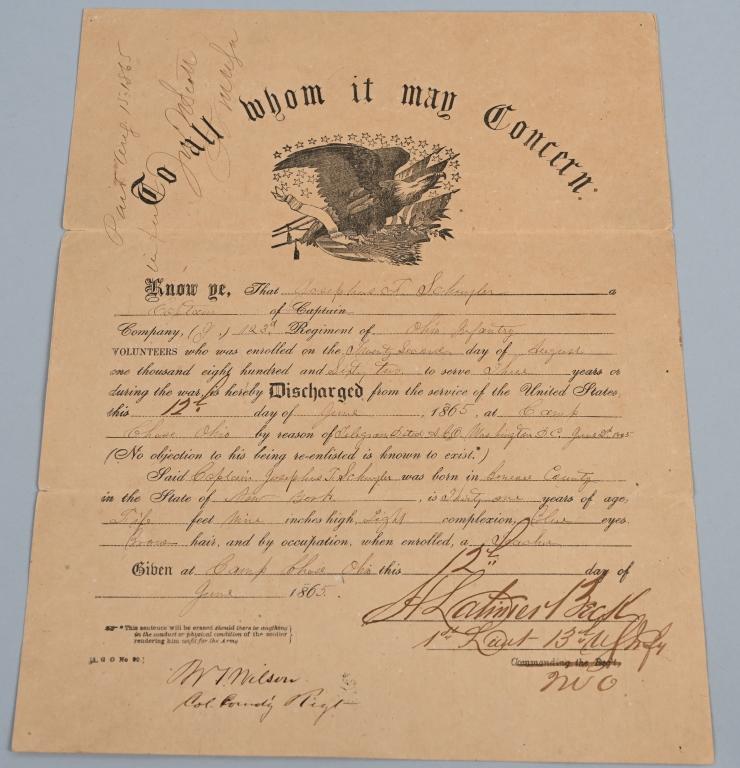 Paid Aug 15. 1865
To all whom it may Concern:
Know ye, That Josephus T. Schuyler a
Captain of Captain
Company, (G.) 123d Regiment of Ohio Infantry
VOLUNTEERS who was enrolled on the Twenty Second day of August
one thousand eight hundred and Sixty two to serve Three years or
during the war, is hereby Discharged from the service of the United States,
this 12th day of June, 1865, at Camp
Chase, Ohio by reason of Telegram dated A.G.O. Washington D.C. June
(No objection to his being re-enlisted is known to exist.*)
Said Captain Josephus T. Schuyler was born in County
in the State of New York, is Thirty one years of age,
Five feet Nine inches high, Light complexion, Blue eyes,
hair, and by occupation, when enrolled, a
Given at Camp Chase Ohio this 12th day of
June 1865.
A Latimer Beck
1st Lieut 13th U.S. Infy
* This sentence will be erased should there be anything
in the conduct or physical condition of the soldier
rendering him unfit for the Army
Commanding the Regt.
[A. G. O. No 99.]
W. T. Wilson
Col. Comdg Regt